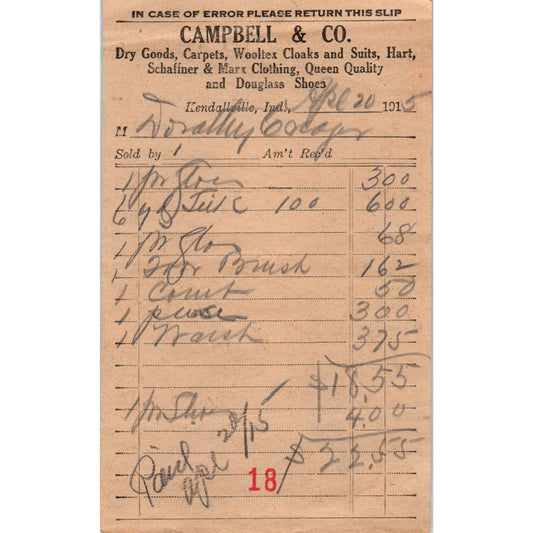 IN CASE OF ERROR PLEASE RETURN THIS SLIP
CAMPBELL & CO.
Dry Goods, Carpets, Wooltex Cloaks and Suits, Hart,
Schaffner & Marx Clothing, Queen Quality
and Douglass Shoes
Kendallville, Ind., Apl 20 1915
M Dorathy
Sold by 1 Am't Rec'd
1 pr 300
6 yd Silk 100 600
1 pr 68
1 Brush 162
1 50
1 purse 300
1 Waist 375
$18.55
1 pr Shoes 4.00
$22.55
Paid Apl 20/15
18